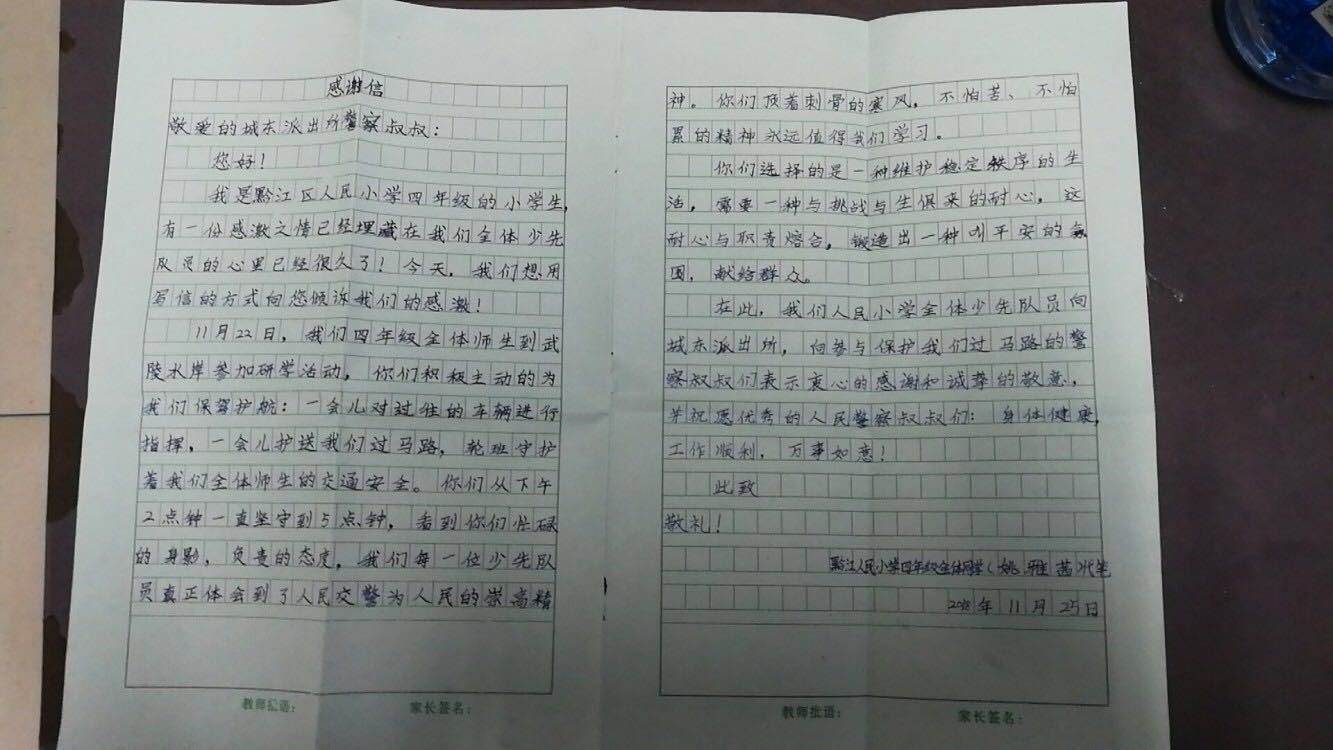 感谢信
敬爱的城东派出所警察叔叔：
您好！
我是黔江区人民小学四年级的小学生，
有一份感激之情已经埋藏在我们全体少先
队员的心里已经很久了！今天，我们想用
写信的方式向您倾诉我们的感激！
11月22日，我们四年级全体师生到武
陵水岸参加研学活动，你们积极主动的为
我们保驾护航：一会儿对过往的车辆进行
指挥，一会儿护送我们过马路，轮班守护
着我们全体师生的交通安全。你们从下午
2点钟一直坚守到5点钟，看到你们忙碌
的身影，负责的态度，我们每一位少先队
员真正体会到了人民交警为人民的崇高精
教师批语：
家长签名：
神。你们顶着刺骨的寒风，不怕苦、不怕
累的精神永远值得我们学习。
你们选择的是一种维护稳定秩序的生
活，需要一种与挑战与生俱来的耐心，这
耐心与职责熔合，锻造出一种叫平安的氛
围，献给群众。
在此，我们人民小学全体少先队员向
城东派出所，向参与保护我们过马路的警
察叔叔们表示衷心的感谢和诚挚的敬意，
并祝愿优秀的人民警察叔叔们：身体健康，
工作顺利，万事如意！
此致
敬礼！
黔江人民小学四年级全体同学（姚雅茜）代笔
2018年11月25日
教师批语：
家长签名：